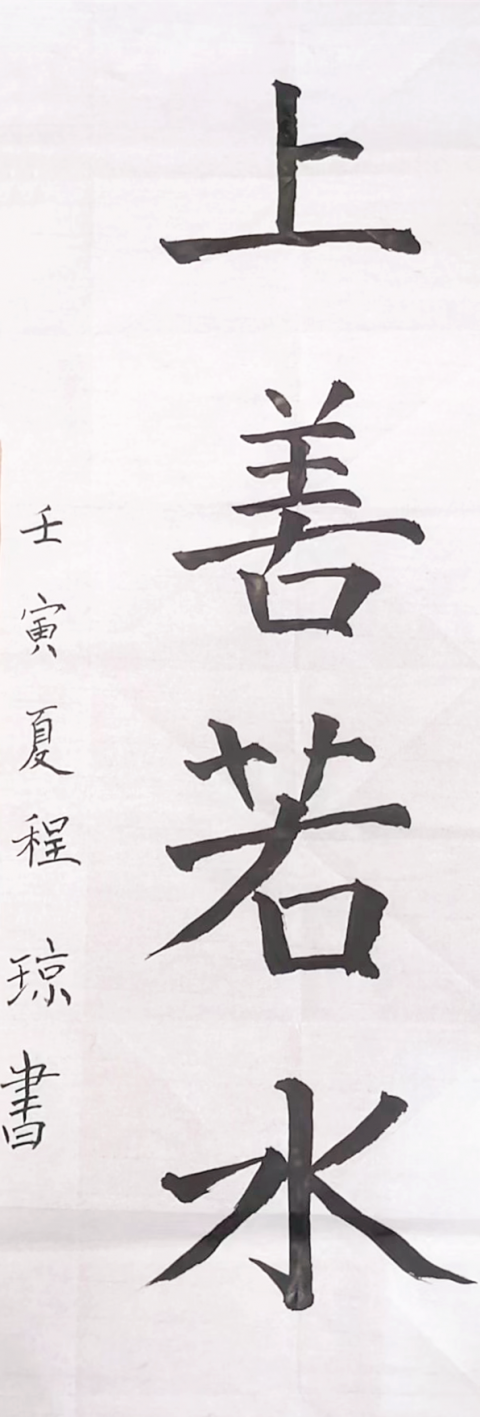 上善若水
壬寅夏程琼書